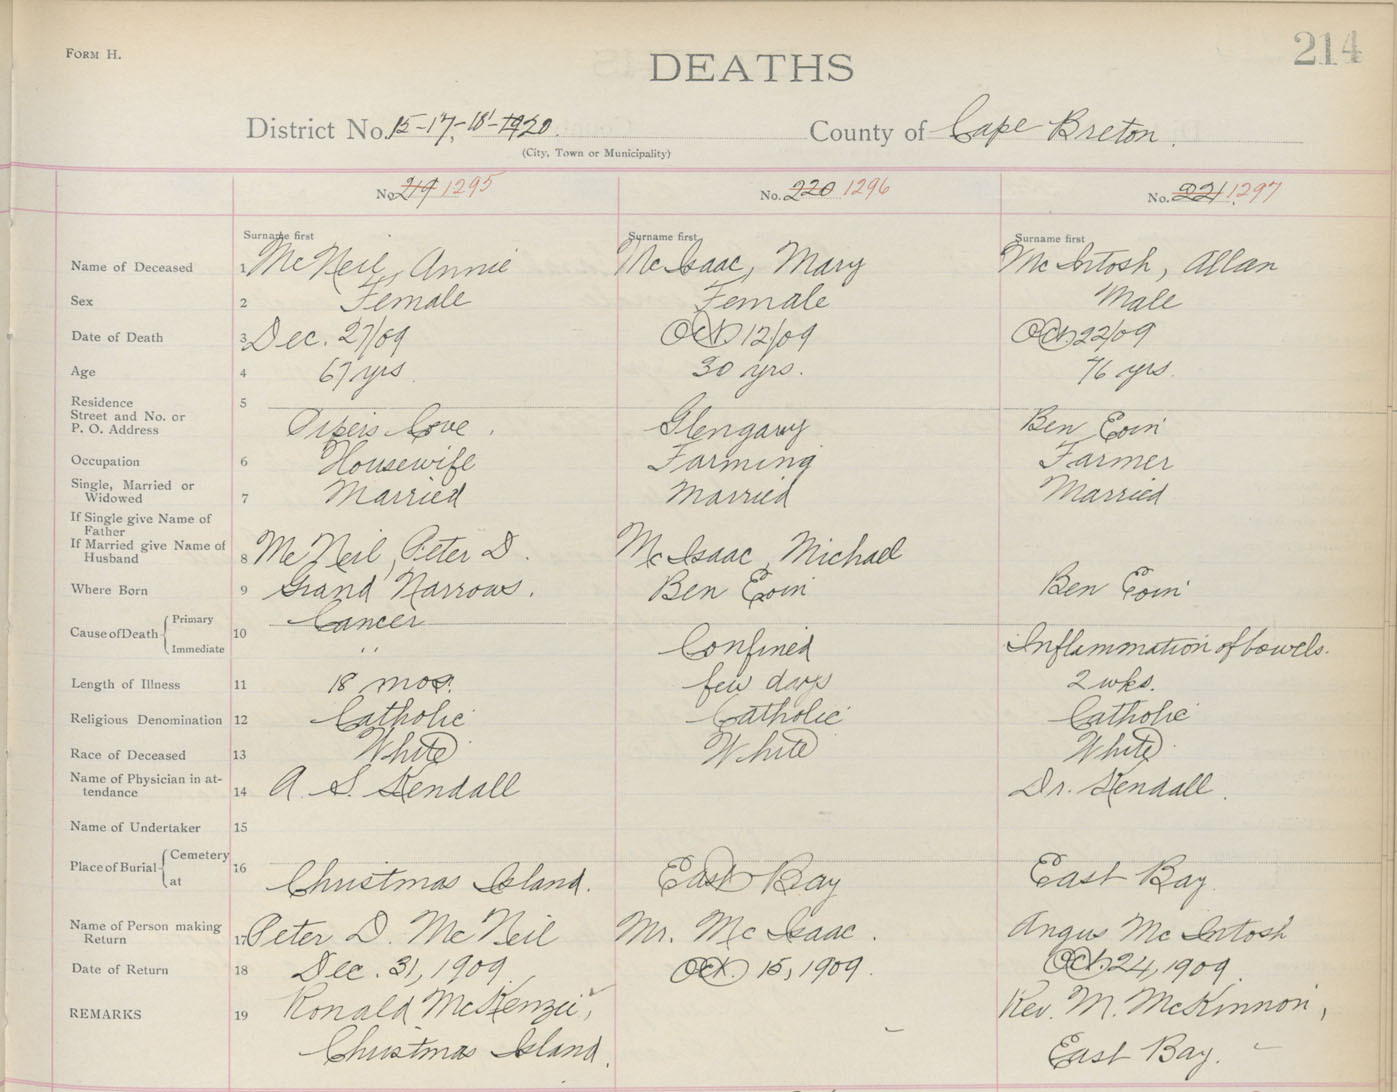 FORM H.
214
DEATHS
District No. 15-17,-18-1920. County of Cape Breton.
(City, Town or Municipality)
No. 219 1295 No. 220 1296 No. 221 1297
Surname first Surname first Surname first
Name of Deceased 1 McNeil, Annie McIsaac, Mary McIntosh, Allan
Sex 2 Female Female Male
Date of Death 3 Dec. 27/09 Oct. 12/09 Oct. 22/09
Age 4 67 yrs. 30 yrs. 76 yrs.
Residence 5
Street and No. or
P. O. Address Pipers Cove. Glengarry Ben Eoin
Occupation 6 Housewife Farming Farmer
Single, Married or
Widowed 7 Married Married Married
If Single give Name of
Father
If Married give Name of
Husband 8 McNeil, Peter D. McIsaac, Michael
Where Born 9 Grand Narrows. Ben Eoin Ben Eoin
Cause of Death Primary 10 Cancer
Immediate " Confined Inflammation of bowels.
Length of Illness 11 18 mos. few days 2 wks.
Religious Denomination 12 Catholic Catholic Catholic
Race of Deceased 13 White White White
Name of Physician in at-
tendance 14 A. S. Kendall Dr. Kendall.
Name of Undertaker 15
Place of Burial Cemetery 16
at Christmas Island. East Bay East Bay.
Name of Person making
Return 17 Peter D. McNeil Mr. McIsaac. Angus McIntosh
Date of Return 18 Dec. 31, 1909 Oct. 15, 1909. Oct. 24, 1909.
REMARKS 19 Ronald McKenzie, Rev. M. McKinnon,
Christmas Island. East Bay.